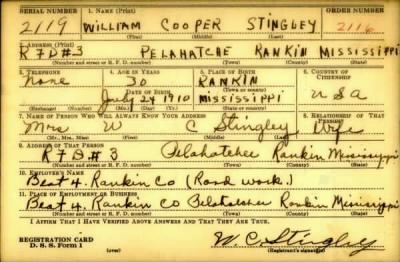 SERIAL NUMBER 1. NAME (Print) ORDER NUMBER
2119 WILLIAM COOPER STINGLEY 2116
(First) (Middle) (Last)
2. ADDRESS (Print)
RFD#3 PELAHATCHE RANKIN MISSISSIPPI
(Number and street or R. F. D. number) (Town) (County) (State)
3. TELEPHONE 4. AGE IN YEARS 5. PLACE OF BIRTH 6. COUNTRY OF CITIZENSHIP
None 30 RANKIN
DATE OF BIRTH (Town or county)
July 24 1910 MISSISSIPPI USA
(Exchange) (Number) (Mo.) (Day) (Yr.) (State or country)
7. NAME OF PERSON WHO WILL ALWAYS KNOW YOUR ADDRESS 8. RELATIONSHIP OF THAT PERSON
Mrs W C Stingley Wife
(Mr., Mrs., Miss) (First) (Middle) (Last)
9. ADDRESS OF THAT PERSON
RFD#3 Pelahatchee Rankin Mississippi
(Number and street or R. F. D. number) (Town) (County) (State)
10. EMPLOYER'S NAME
Beat 4, Rankin Co (Road work.)
11. PLACE OF EMPLOYMENT OR BUSINESS
Beat 4, Rankin co Pelahatchee Rankin Mississippi
(Number and street or R. F. D. number) (Town) (County) (State)
I AFFIRM THAT I HAVE VERIFIED ABOVE ANSWERS AND THAT THEY ARE TRUE.
REGISTRATION CARD
D. S. S. Form 1 W. C. Stingley
(Registrant's signature)